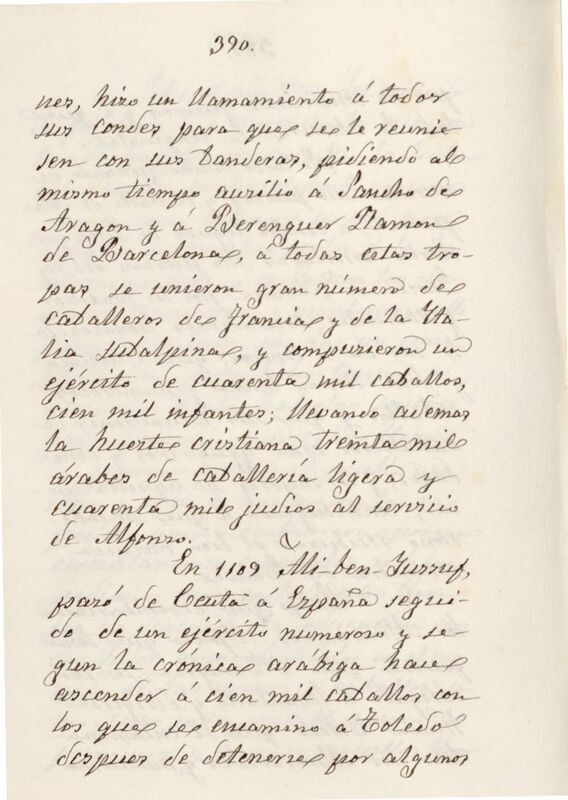 390.
nes, hizo un llamamiento á todos
sus condes para que se le reunie
sen con sus banderas, pidiendo al
mismo tiempo auxilio á Sancho de
Aragon y á Berenguer Ramon
de Barcelona, á todas estas tro-
pas se unieron gran número de
caballeros de Francia y de la Ita-
lia subalpina, y compuzieron un
ejército de cuarenta mil caballos,
cien mil infantes; llevando ademas
la hueste cristiana treinta mil
árabes de caballería ligera y
cuarenta mil judios al servicio
de Alfonso.
En 1109 Ali-ben-Jussuf,
pazó de Ceuta á España segui-
do de un ejército numeroso y se
gun la crónica arábiga hace
ascender á cien mil caballos con
los que se encamino á Toledo
despues de detenerse por algunos